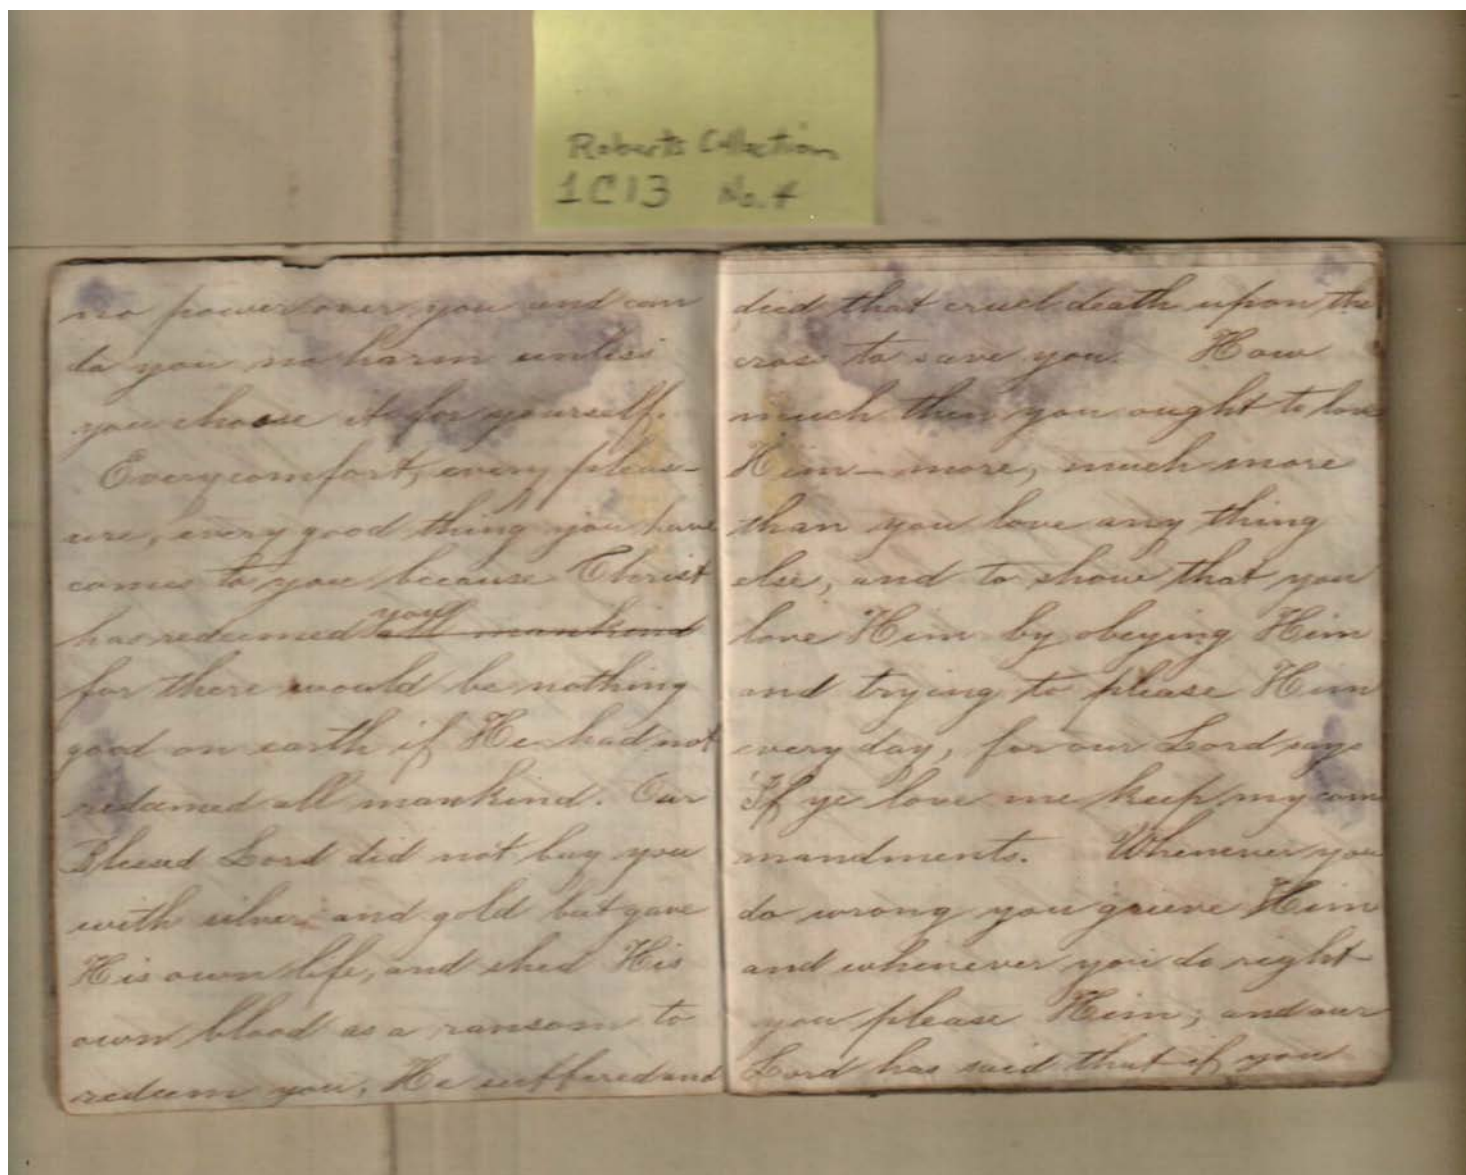 Roberts Collection
1C13 No. 4
no power over you and can
do you no harm unless
you choose it for yourself.
Every comfort, every pleas-
ure, every good thing you have
comes to you because Christ
has redeemed you all mankind
for there would be nothing
good on earth if He had not
redeemed all mankind. Our
Blessed Lord did not buy you
with silver and gold but gave
His own life, and shed His
own blood as a ransom to
redeem you, He suffered and
died that cruel death upon the
cross to save you. How
much then you ought to love
Him— more, much more
than you love any thing
else, and to show that you
love Him by obeying Him
and trying to please Him
every day, for our Lord says
"If ye love me keep my com
mandments. Whenever you
do wrong you grieve Him
and whenever you do right—
you please Him; and our
Lord has said that if you